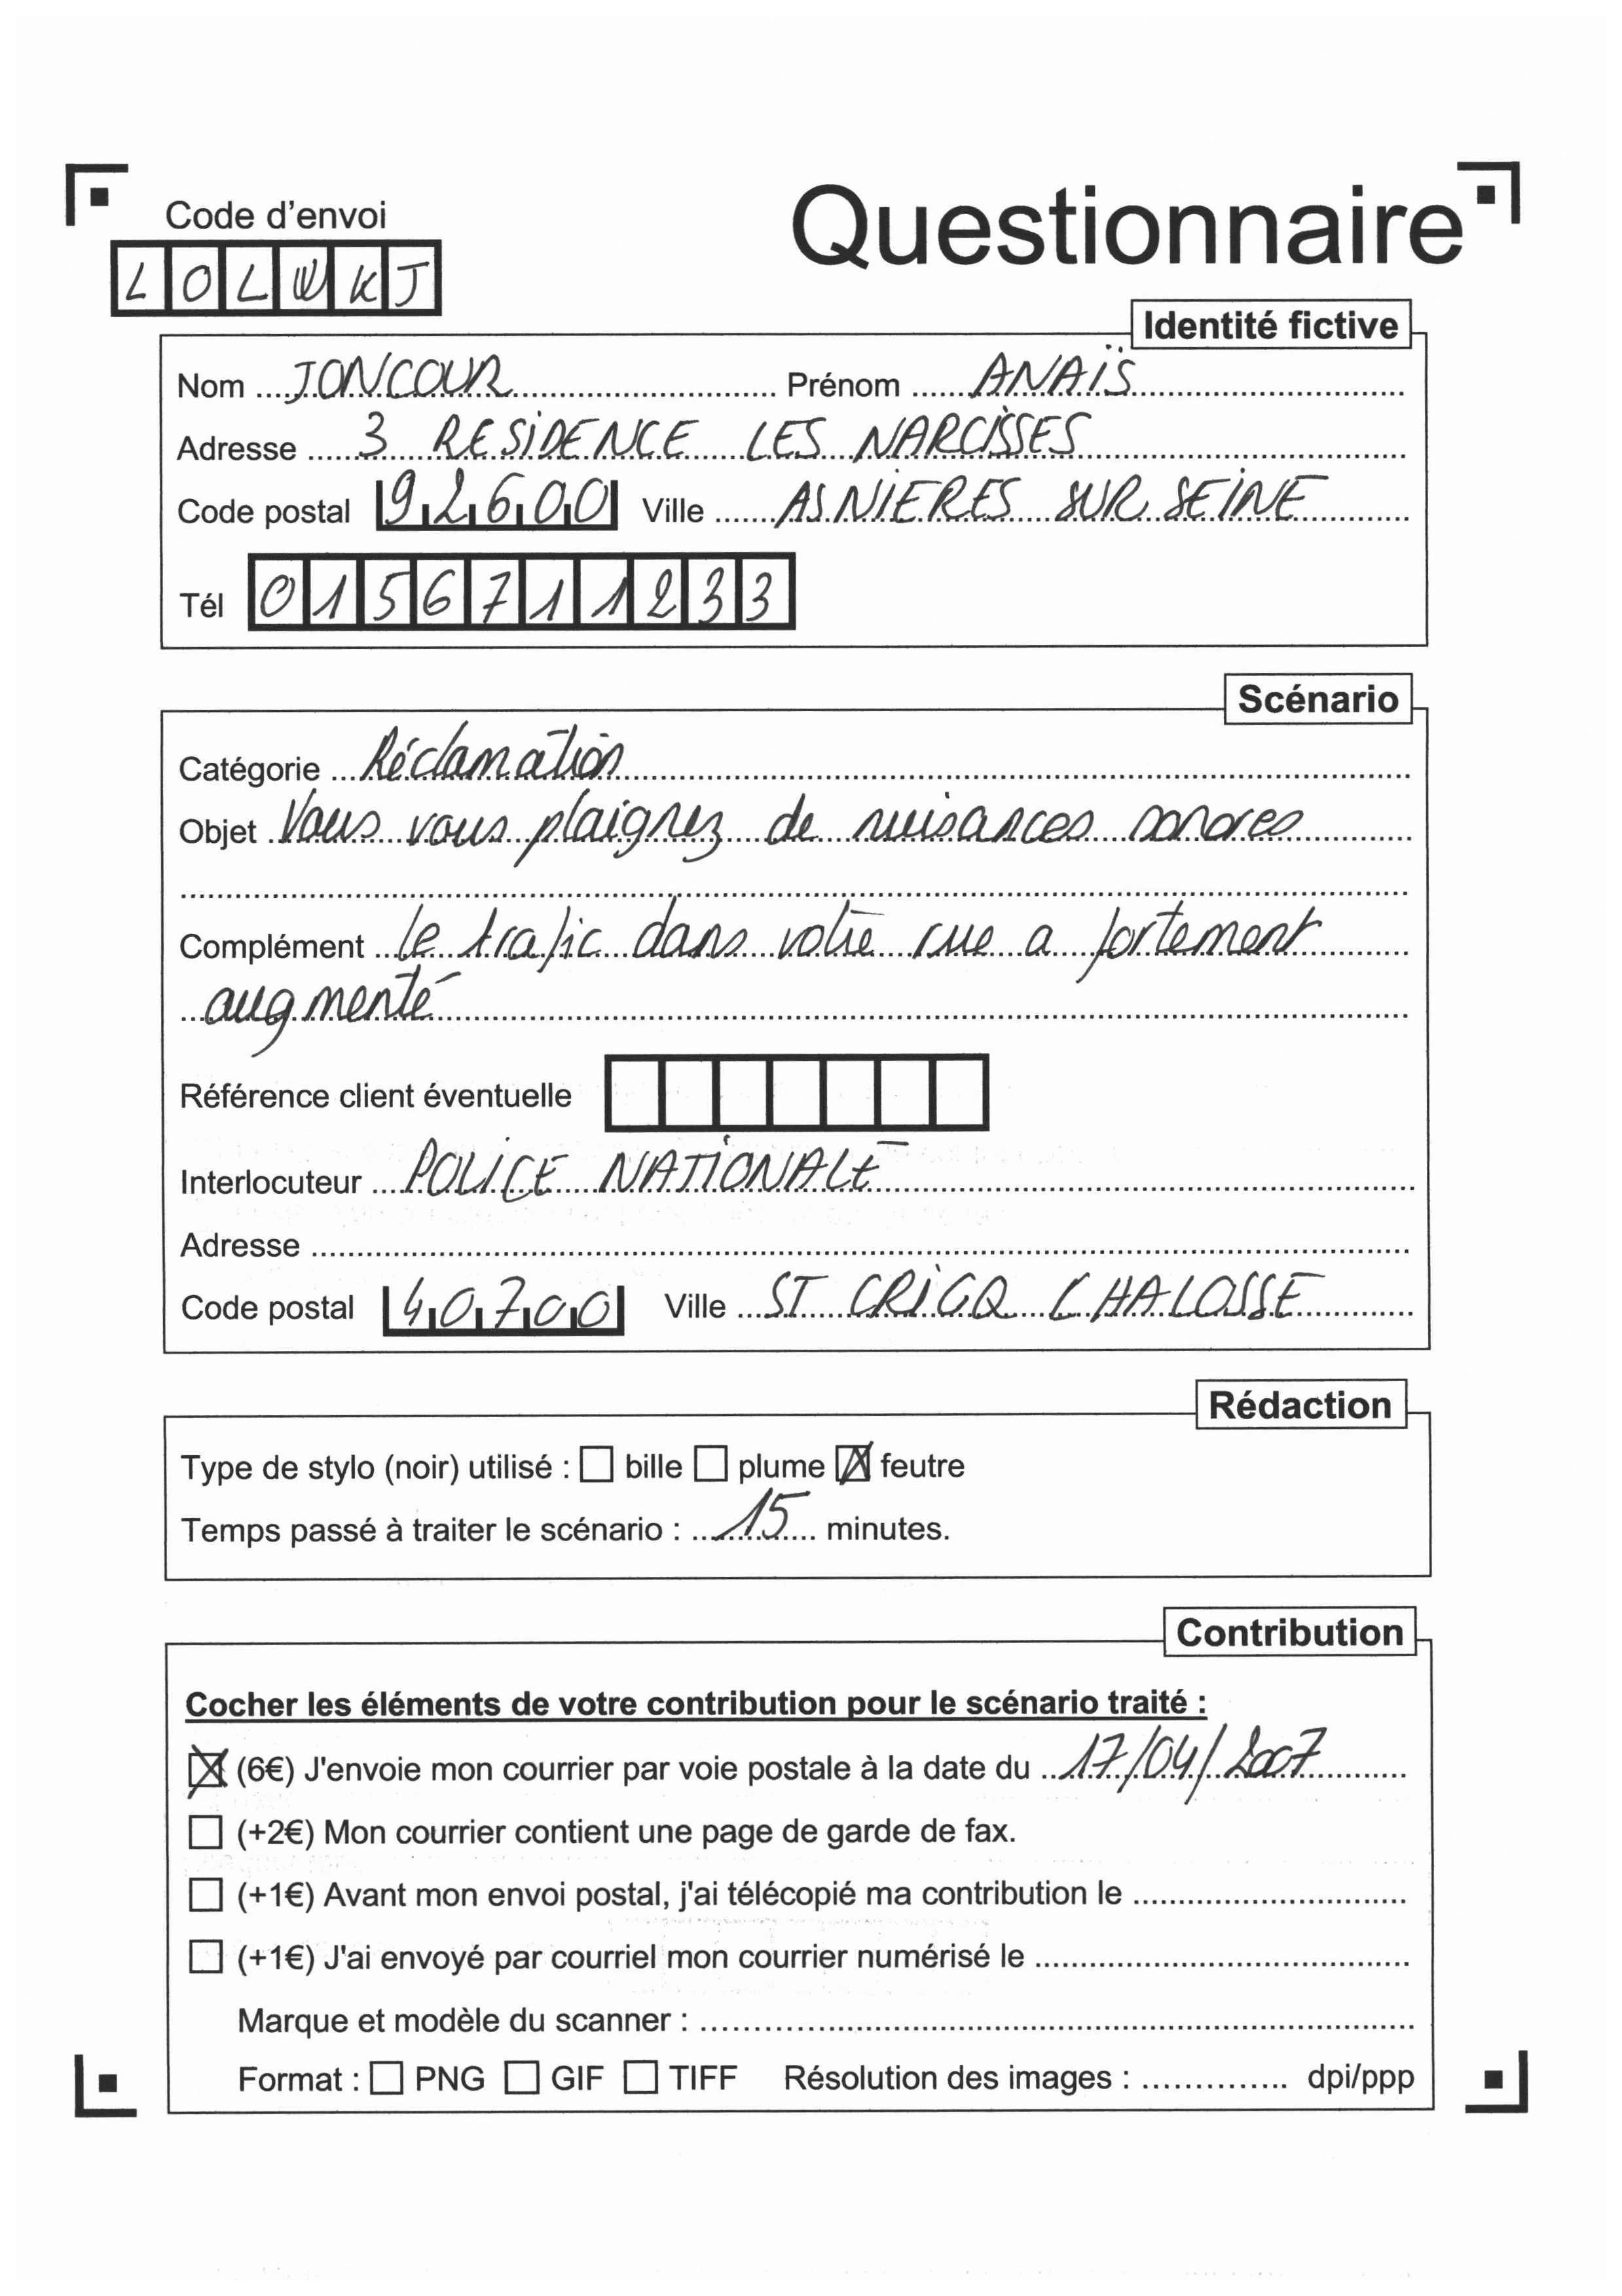 Questionnaire
Code d'envoi
LOLWKJ
Identité fictive
Nom JONCOUR Prénom ANAÏS
Adresse 3 RESIDENCE LES NARCISSES
Code postal 92600 Ville ASNIERES SUR SEINE
Tél 0156711233
Scénario
Catégorie Réclamation
Objet Vous vous plaignez de nuisances sonores
Complément le trafic dans votre rue a fortement
augmenté
Référence client éventuelle
Interlocuteur POLICE NATIONALE
Adresse
Code postal 40700 Ville ST CRICQ CHALOSSE
Rédaction
Type de stylo (noir) utilisé : bille plume feutre
Temps passé à traiter le scénario : 15 minutes.
Contribution
Cocher les éléments de votre contribution pour le scénario traité :
(6€) J'envoie mon courrier par voie postale à la date du 17/04/2007
(+2€) Mon courrier contient une page de garde de fax.
(+1€) Avant mon envoi postal, j'ai télécopié ma contribution le
(+1€) J'ai envoyé par courriel mon courrier numérisé le
Marque et modèle du scanner :
Format : PNG GIF TIFF Résolution des images : dpi/ppp